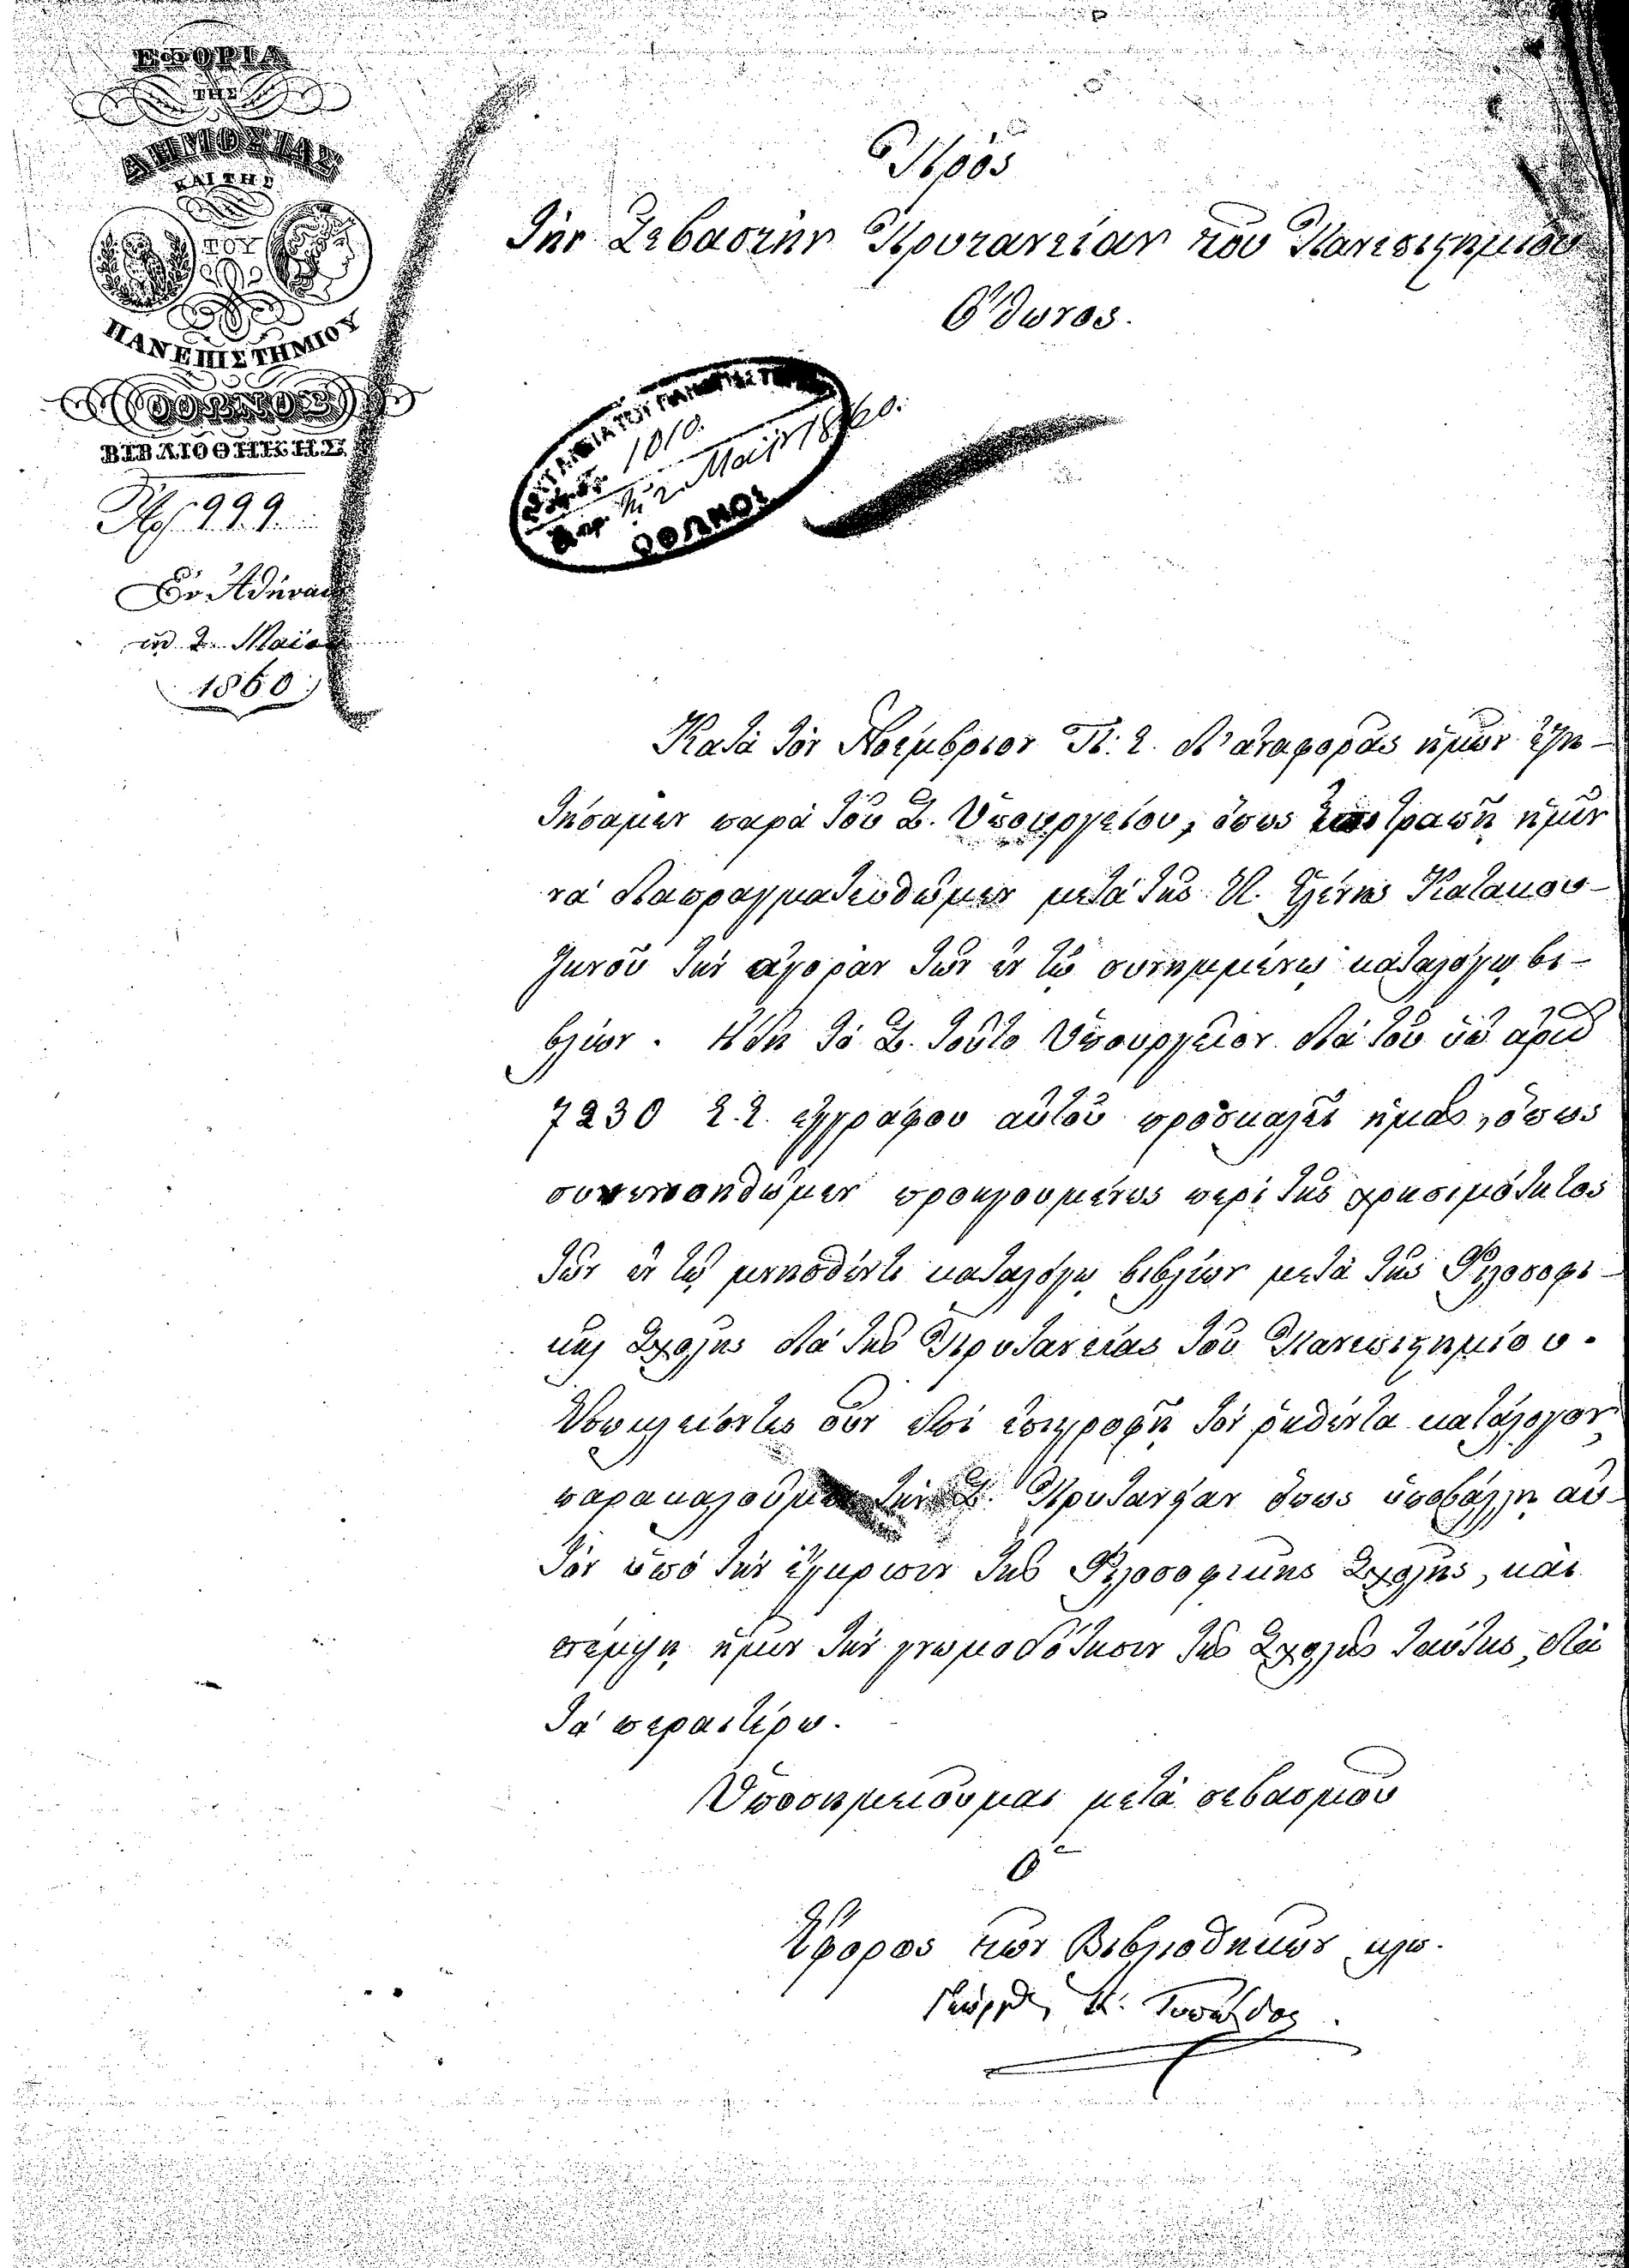 ΕΦΟΡΙΑ
ΤΗΣ
ΔΗΜΟΣΙΑΣ
ΚΑΙ ΤΗΣ
ΤΟΥ
ΠΑΝΕΠΙΣΤΗΜΙΟΥ
ΟΘΩΝΟΣ
ΒΙΒΛΙΟΘΗΚΗΣ
999
Ἐν Ἀθήναις
τῇ 2 Μαΐου
1860
Πρὸς
Τὴν Σεβαστὴν Πρυτανείαν τοῦ Πανεπιστημίου
Ὄθωνος.
ΠΡΥΤΑΝΕΙΑ ΤΟΥ ΠΑΝΕΠΙΣΤΗΜΙΟΥ
1010.
2 Μαΐου 1860.
ΟΘΩΝΟΣ
Κατὰ τὸν Νοέμβριον Π. Ἔ. δι' ἀναφορᾶς ἡμῶν ἐζη-
τήσαμεν παρὰ τοῦ Σ. Ὑπουργείου, ὅπως ἐπιτραπῇ ἡμῖν
νὰ διαπραγματευθῶμεν μετὰ τῆς Κ. Ἑλένης Κατακου-
ζηνοῦ τὴν ἀγορὰν τῶν ἐν τῷ συνημμένῳ καταλόγῳ βι-
βλίων. Ἤδη τὸ Σ. τοῦτο Ὑπουργεῖον διὰ τοῦ ὑπ' ἀριθ
7230 Ἐ.Ἔ. ἐγγράφου αὐτοῦ προσκαλεῖ ἡμᾶς, ὅπως
συνεννοηθῶμεν προηγουμένως περὶ τῆς χρησιμότητος
τῶν ἐν τῷ μνησθέντι καταλόγῳ βιβλίων μετὰ τῆς Φιλοσοφι-
κῆς Σχολῆς διὰ τῆς Πρυτανείας τοῦ Πανεπιστημίου.
Ἐσωκλείοντες οὖν ἐπὶ ἐπιστροφῇ τὸν ῥηθέντα κατάλογον,
παρακαλοῦμεν τὴν Σ. Πρυτανείαν ὅπως ὑποβάλλῃ αὐ-
τὸν ὑπὸ τὴν ἔγκρισιν τῆς Φιλοσοφικῆς Σχολῆς, καὶ
πέμψῃ ἡμῖν τὴν γνωμοδότησιν τῆς Σχολῆς ταύτης, διὰ
τὰ περαιτέρω.
Ὑποσημειοῦμαι μετὰ σεβασμοῦ
Ὁ
Ἔφορος τῶν Βιβλιοθηκῶν κλπ.
Γεώργιος Κ. Τυπάλδος.